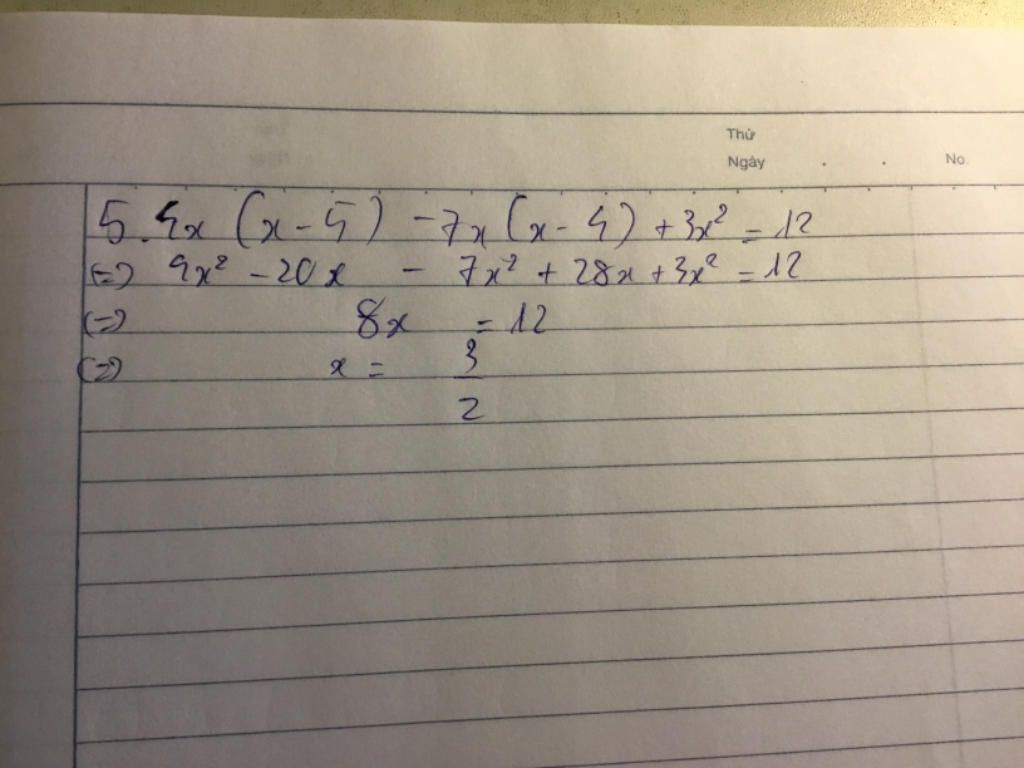 Thứ
Ngày . . No.
5. 4x (x - 5) - 7x (x - 4) + 3x² = 12
(=) 4x² - 20x - 7x² + 28x + 3x² = 12
(=) 8x = 12
(=) x = 3/2